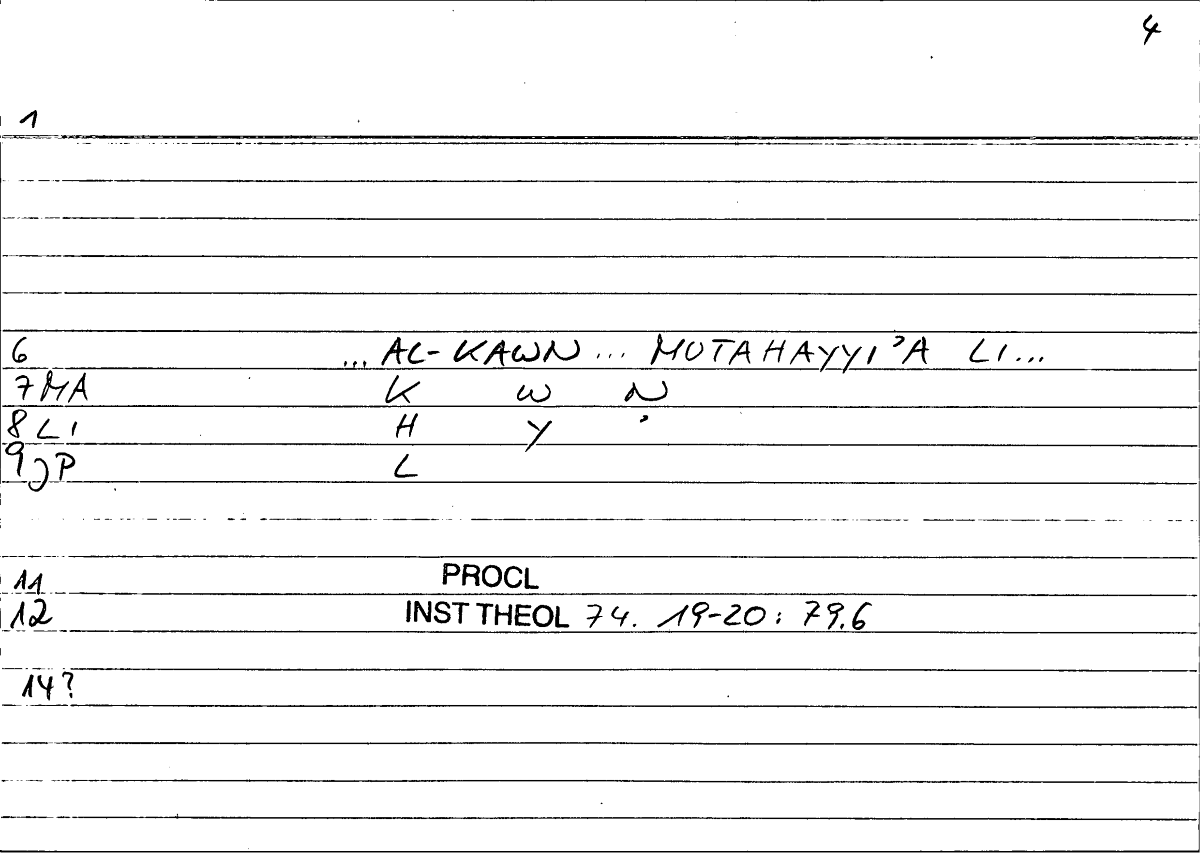 4
1
6 ... AL-KAWN ... MUTAHAYYI'A LI...
7 MA K W N
8 LI H Y '
9 JP L
11 PROCL
12 INST THEOL 74. 19-20 : 79.6
14?